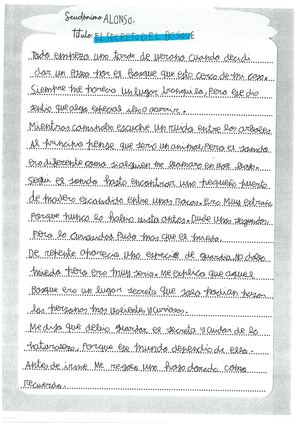 Seudónimo ALONSO.
Título: EL SECRETO DEL BOSQUE
Todo empezo una tarde de verano cuando decidi
dar un paseo por el bosque que esta cerca de mi casa.
Siempre me parecio un lugar tranquilo, Pero ese dia
sentia que algo especial iba a ocurrir.
Mientras caminaba escuche un ruido entre los arboles
Al principio pense que seria un animal, Pero el sonido
era diferente como si alguien me llamara en voz baja.
Segui el sonido hasta encontrar una pequeña puerta
de madera escondida entre unas rocas. Era Muy extraño
Porque nunca la habia visto antes. Dude unos segundos
pero la curiosidad Pudo mas que el miedo.
De repente aparecio una especie de guardia. No daba
miedo pero era muy serio. Me explico que aquel
Bosque era un lugar secreto que solo podian pasar
las personas mas valientes y curiosas.
Me dijo que debia guardar el secreto y cuidar de la
naturaleza, Porque ese mundo dependia de ella.
Antes de irme Me regalo una hoja dorada como
recuerdo.